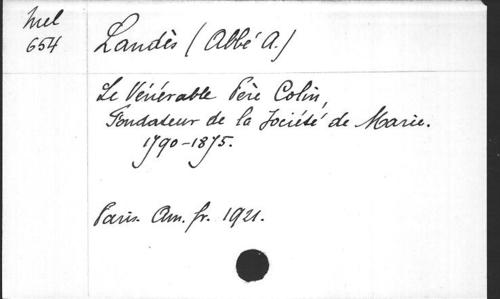 Mel
654
Landès (Abbé A.)
Le Vénérable Père Colin,
Fondateur de la Société de Marie.
1790-1875.
Paris. Am. fr. 1921.